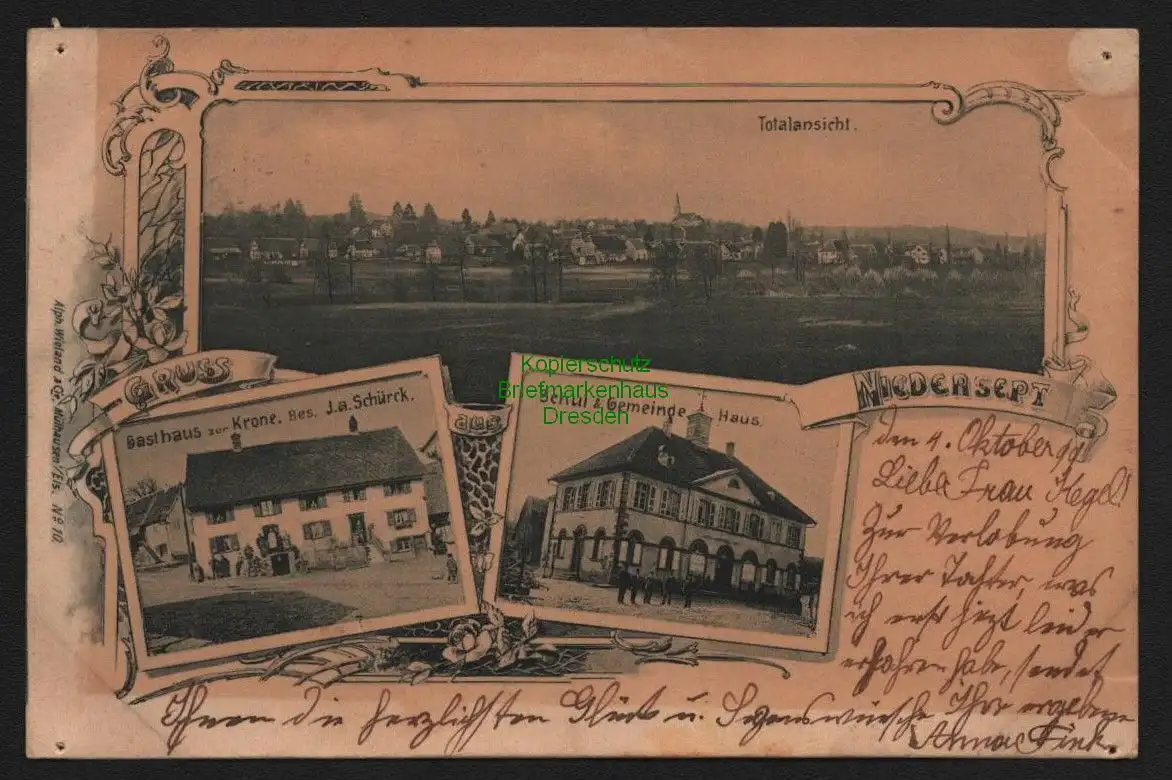 Totalansicht.
GRUSS
aus
NIEDERSEPT
Gasthaus zur Krone. Bes. J.a. Schürck.
Schul & Gemeinde Haus.
Kopierschutz
Briefmarkenhaus
Dresden
Alph. Wieland & Cie, Mülhausen/Els. Nº 10
den 4. Oktober 99
Liebe Frau Hegel!
Zur Verlobung
Ihrer Tochter, was
ich erst jezt leider
erfahren habe, sendet
Ihnen die herzlichsten Glück u. Segenswünsche Ihre ergebene
Anna Fink.